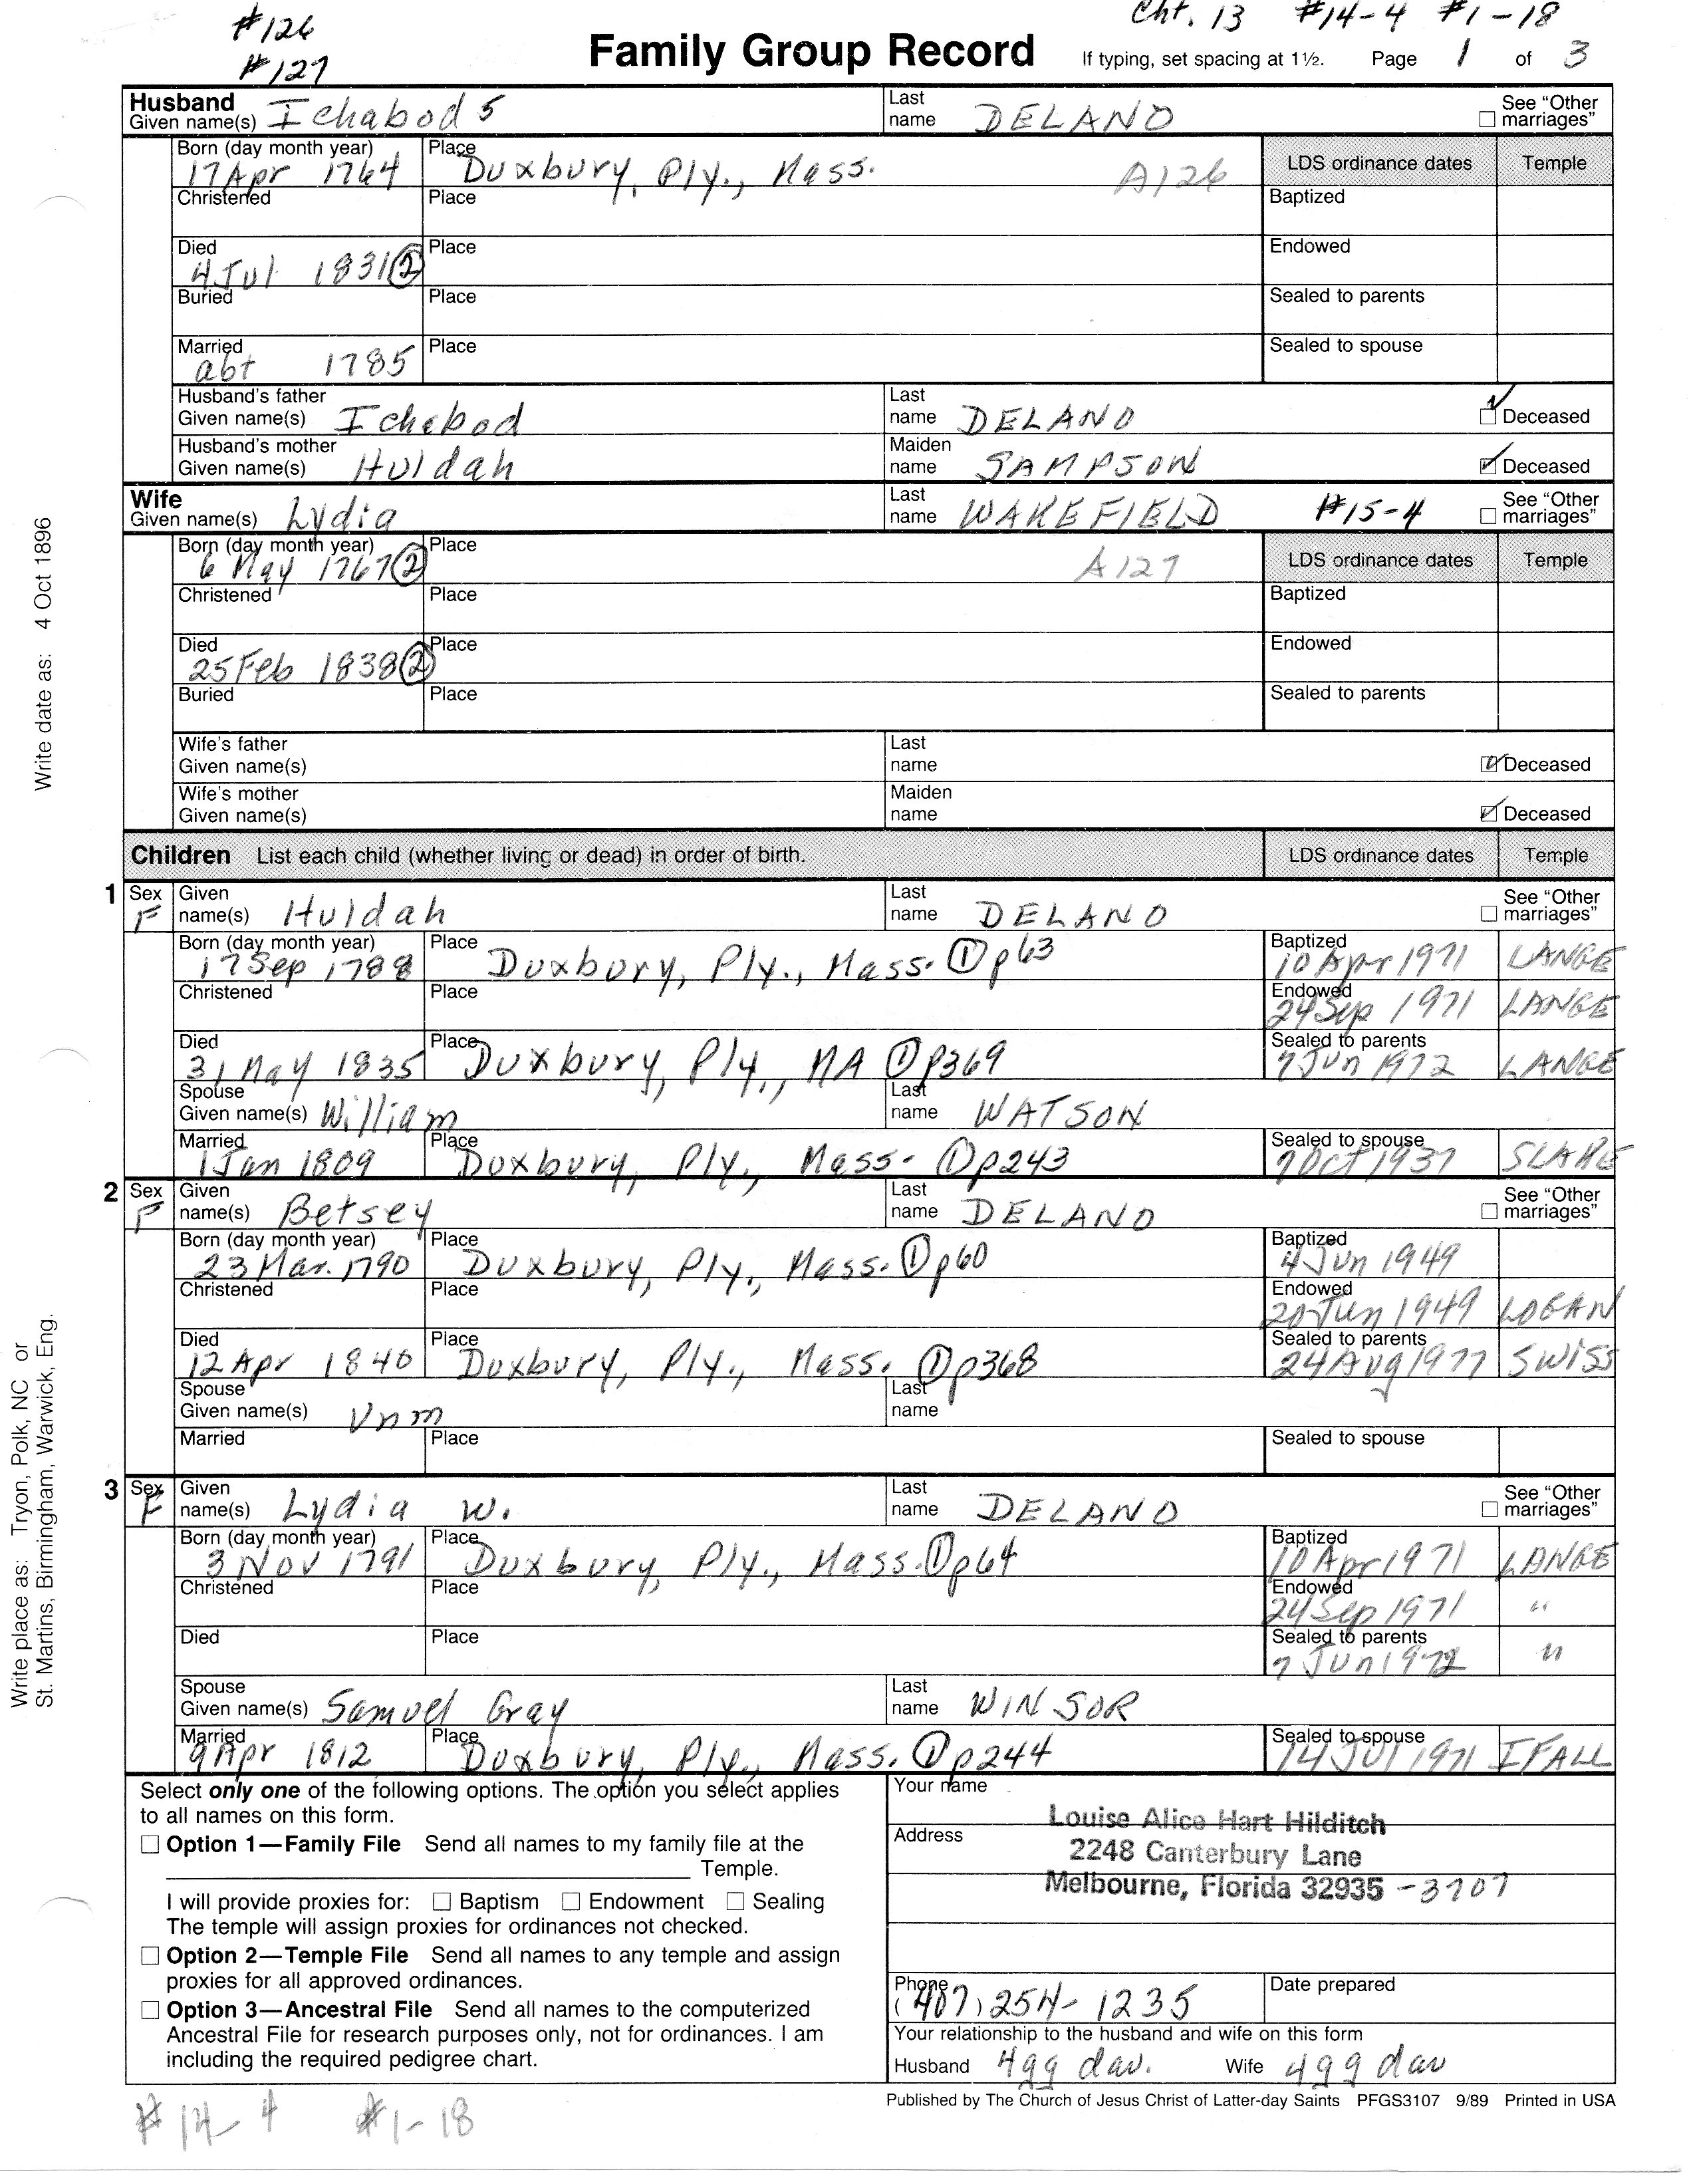 #126 Cht. 13 #14-4 #1-18
#127 Family Group Record If typing, set spacing at 1½. Page 1 of 3
Husband
Given name(s) Ichabod 5 Last name DELANO See "Other marriages"
Born (day month year) 17 Apr 1764 Place Duxbury, Ply., Mass. A126 LDS ordinance dates Temple
Christened Place Baptized
Died 4 Jul 1831 ② Place Endowed
Buried Place Sealed to parents
Married abt 1785 Place Sealed to spouse
Husband's father
Given name(s) Ichabod Last name DELANO Deceased
Husband's mother
Given name(s) Huldah Maiden name SAMPSON Deceased
Wife
Given name(s) Lydia Last name WAKEFIELD #15-4 See "Other marriages"
Born (day month year) 6 May 1767 ② Place A127 LDS ordinance dates Temple
Christened Place Baptized
Died 25 Feb 1838 ② Place Endowed
Buried Place Sealed to parents
Wife's father
Given name(s) Last name Deceased
Wife's mother
Given name(s) Maiden name Deceased
Children List each child (whether living or dead) in order of birth. LDS ordinance dates Temple
1 Sex F Given name(s) Huldah Last name DELANO See "Other marriages"
Born (day month year) 17 Sep 1788 Place Duxbury, Ply., Mass. ① p63 Baptized 10 Apr 1971 LANGE
Christened Place Endowed 24 Sep 1971 LANGE
Died 31 May 1835 Place Duxbury, Ply., MA ① p369 Sealed to parents 7 Jun 1972 LANGE
Spouse
Given name(s) William Last name WATSON
Married 1 Jan 1809 Place Duxbury, Ply., Mass. ① p243 Sealed to spouse 7 Oct 1937 SLAKE
2 Sex F Given name(s) Betsey Last name DELANO See "Other marriages"
Born (day month year) 23 Mar. 1790 Place Duxbury, Ply., Mass. ① p60 Baptized 4 Jun 1949
Christened Place Endowed 20 Jun 1949 LOGAN
Died 12 Apr 1840 Place Duxbury, Ply., Mass. ① p368 Sealed to parents 24 Aug 1977 SWISS
Spouse
Given name(s) Unm Last name
Married Place Sealed to spouse
3 Sex F Given name(s) Lydia W. Last name DELANO See "Other marriages"
Born (day month year) 3 Nov 1791 Place Duxbury, Ply., Mass. ① p64 Baptized 10 Apr 1971 LANGE
Christened Place Endowed 24 Sep 1971 "
Died Place Sealed to parents 7 Jun 1972 "
Spouse
Given name(s) Samuel Gray Last name WINSOR
Married 9 Apr 1812 Place Duxbury, Ply., Mass. ① p244 Sealed to spouse 14 Jul 1971 IFALL
Select only one of the following options. The option you select applies
to all names on this form.
Option 1—Family File Send all names to my family file at the
Temple.
I will provide proxies for: Baptism Endowment Sealing
The temple will assign proxies for ordinances not checked.
Option 2—Temple File Send all names to any temple and assign
proxies for all approved ordinances.
Option 3—Ancestral File Send all names to the computerized
Ancestral File for research purposes only, not for ordinances. I am
including the required pedigree chart.
Your name
Louise Alice Hart Hilditch
Address
2248 Canterbury Lane
Melbourne, Florida 32935 -3707
Phone (407) 254-1235 Date prepared
Your relationship to the husband and wife on this form
Husband 4gg dau. Wife 4gg dau
Published by The Church of Jesus Christ of Latter-day Saints PFGS3107 9/89 Printed in USA
#14-4 #1-18
Write date as: 4 Oct 1896
Write place as: Tryon, Polk, NC or
St. Martins, Birmingham, Warwick, Eng.